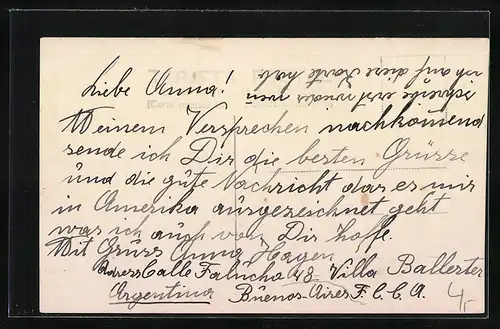 Liebe Anna!
Meinem Versprechen nachkomend
sende ich Dir die besten Grüsse
und die gute Nachricht das es mir
in Amerika ausgezeichnet geht
was ich auch von Dir hoffe.
Mit Gruss Anna Hagen
Adress Calle Falucho 48 Villa Ballester
Argentina Buenos-Aires F.C.C.A.
schreibe erst wieder wen
ich auf diese Karte hab
4,-